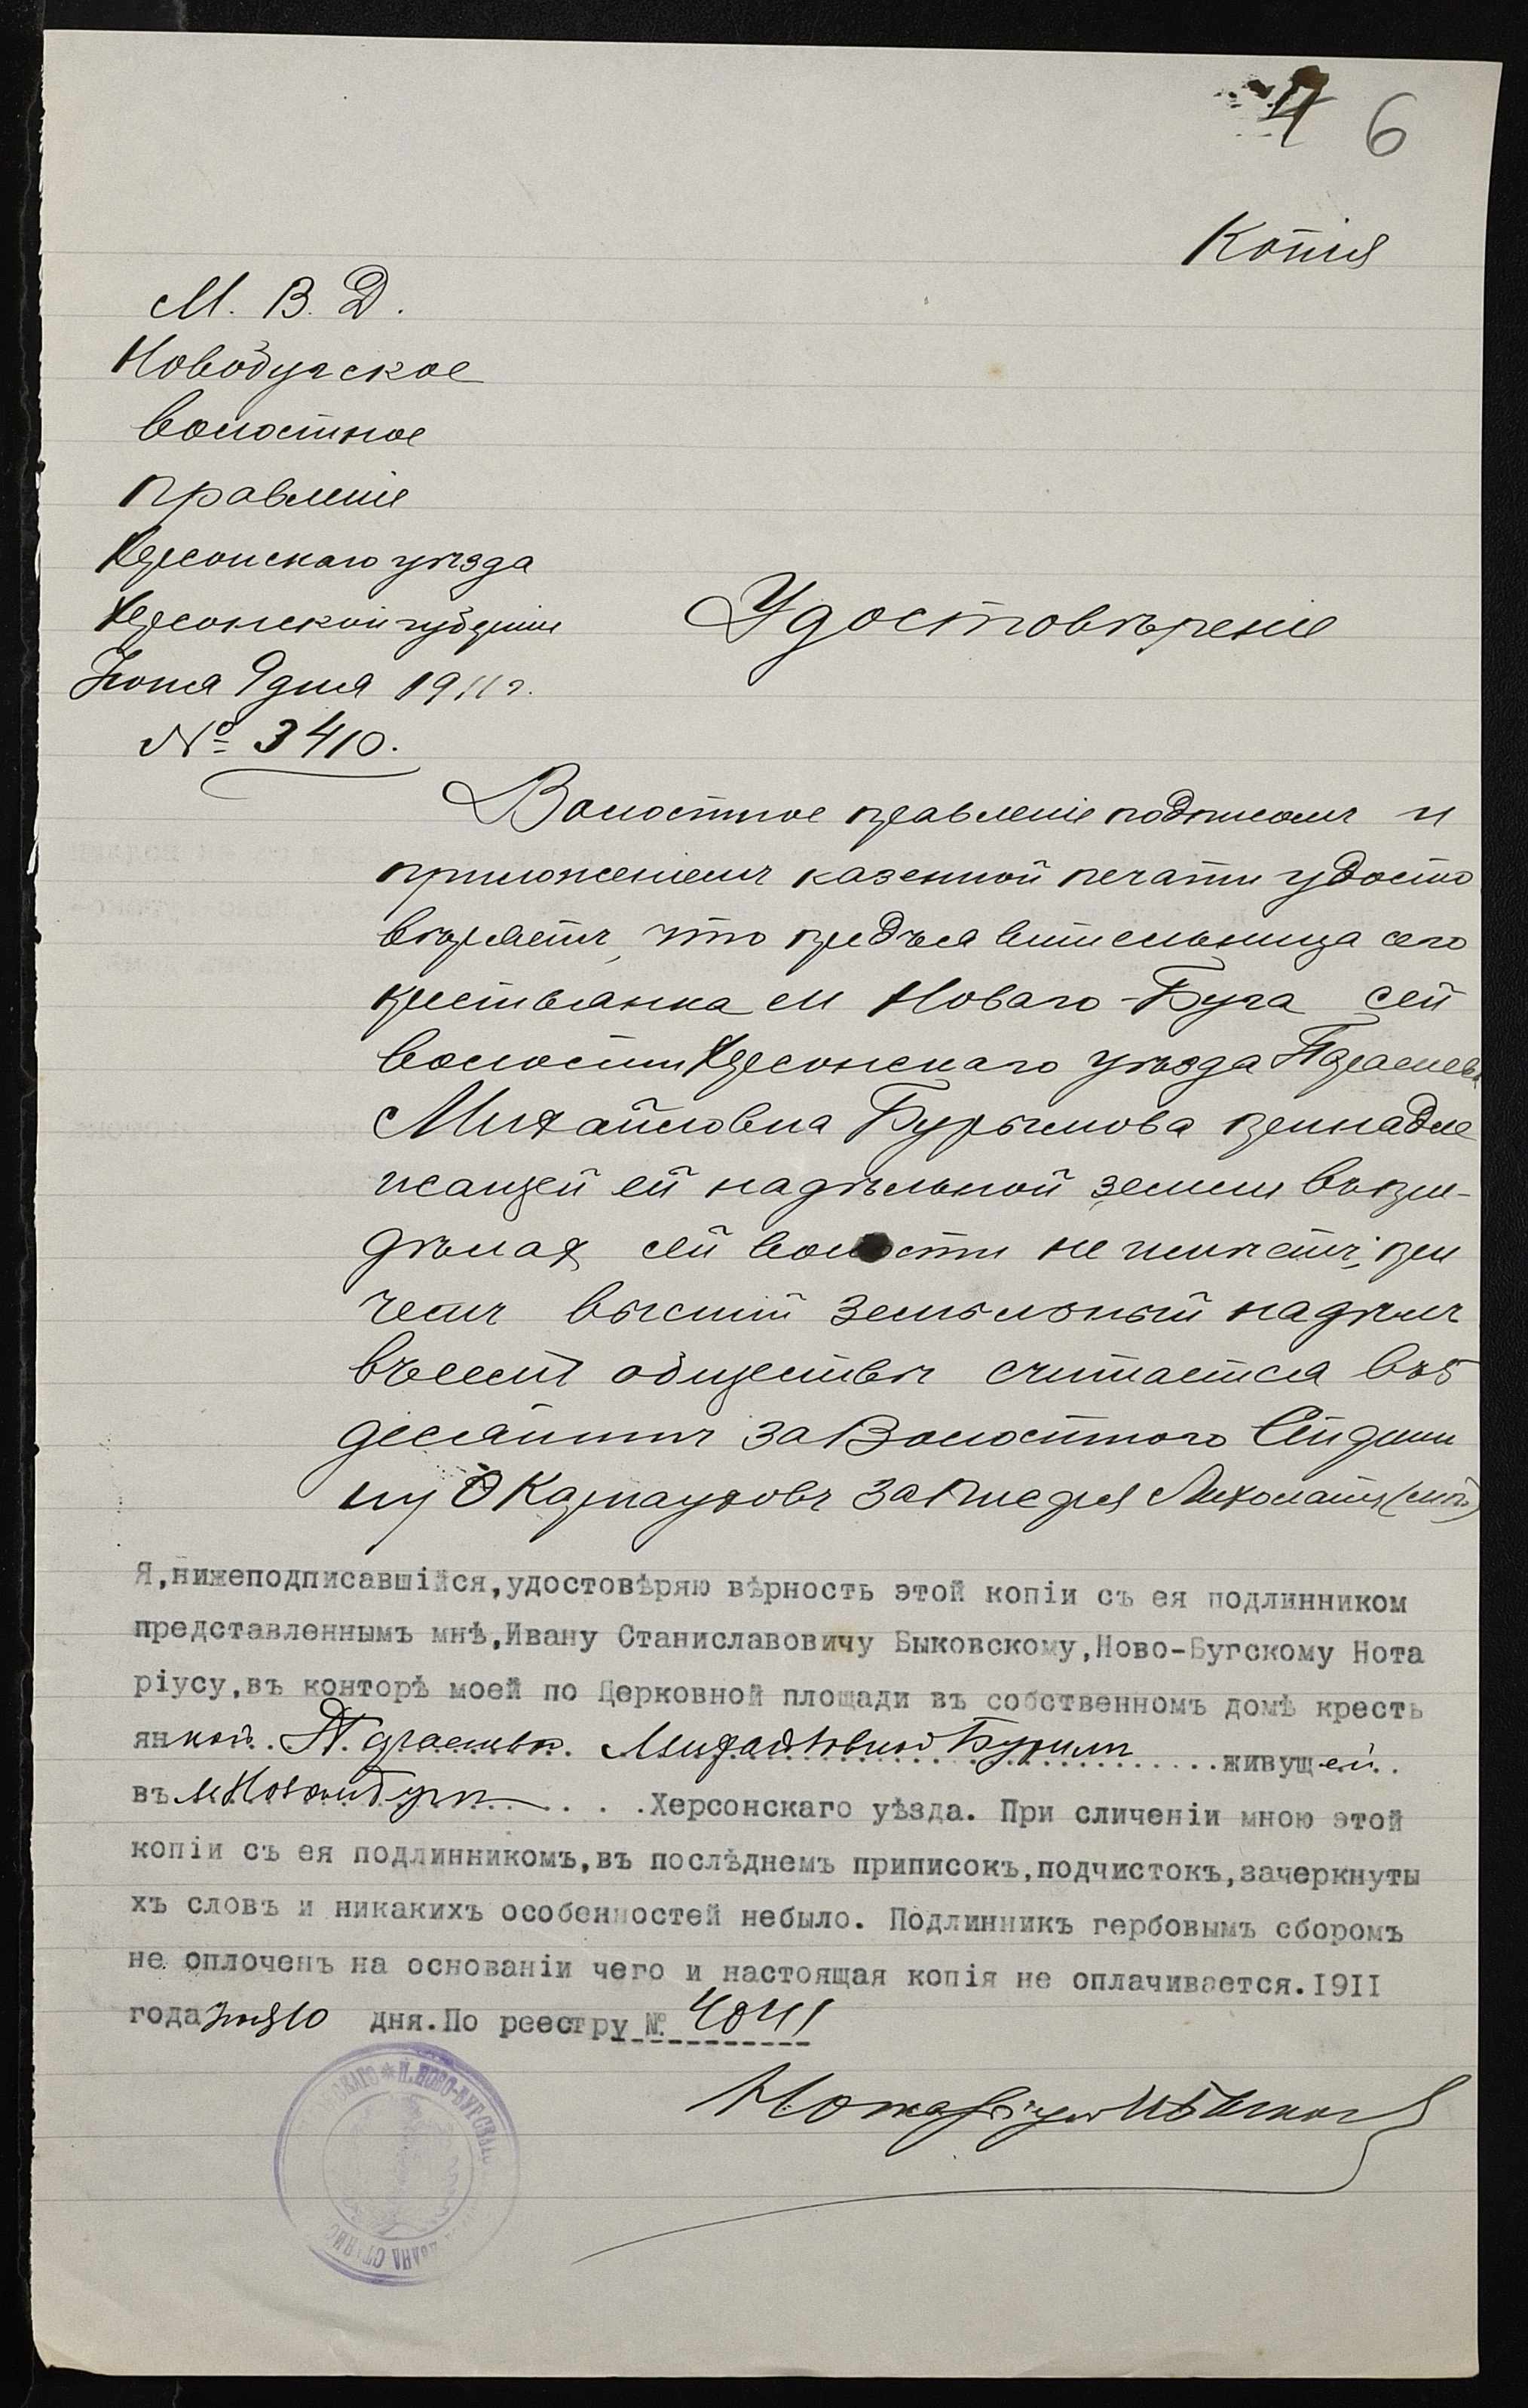 6
Копія
М. В. Д.
Новобугское
волостное
правленіе
Херсонскаго уѣзда
Херсонской губерніи
Удостовѣреніе
Іюня 9 дня 1911 г.
№ 3410.
Волостное правленіе подписомъ и
приложеніемъ казенной печати удосто
вѣряетъ, что предъявительница сего
крестьянка м Новаго-Буга сей
волости Херсонскаго уѣзда
Михайловна Бурымова принадле
жащей ей надѣльной земли въ пре-
дѣлахъ сей волости не имѣетъ, при
чемъ высшій земельный надѣлъ
въ семъ обществѣ считается въ 5
десятинъ За Волостного Старшину
ну О Карнауховъ За Писаря
Я,нижеподписавшійся,удостовѣряю вѣрность этой копіи съ ея подлинником
представленнымъ мнѣ,Ивану Станиславовичу Быковскому,Ново-Бугскому Нота
ріусу,въ конторѣ моей по Церковной площади въ собственномъ домѣ кресть
янкой Михайловной живущей
въ м Новомъ Бугѣ Херсонскаго уѣзда. При сличеніи мною этой
копіи съ ея подлинникомъ,въ послѣднемъ приписокъ,подчистокъ,зачеркнуты
хъ словъ и никакихъ особенностей небыло. Подлинникъ гербовымъ сборомъ
не оплоченъ на основаніи чего и настоящая копія не оплачивается.1911
года Іюня 10 дня.По реестру № 4041
Нотаріусъ